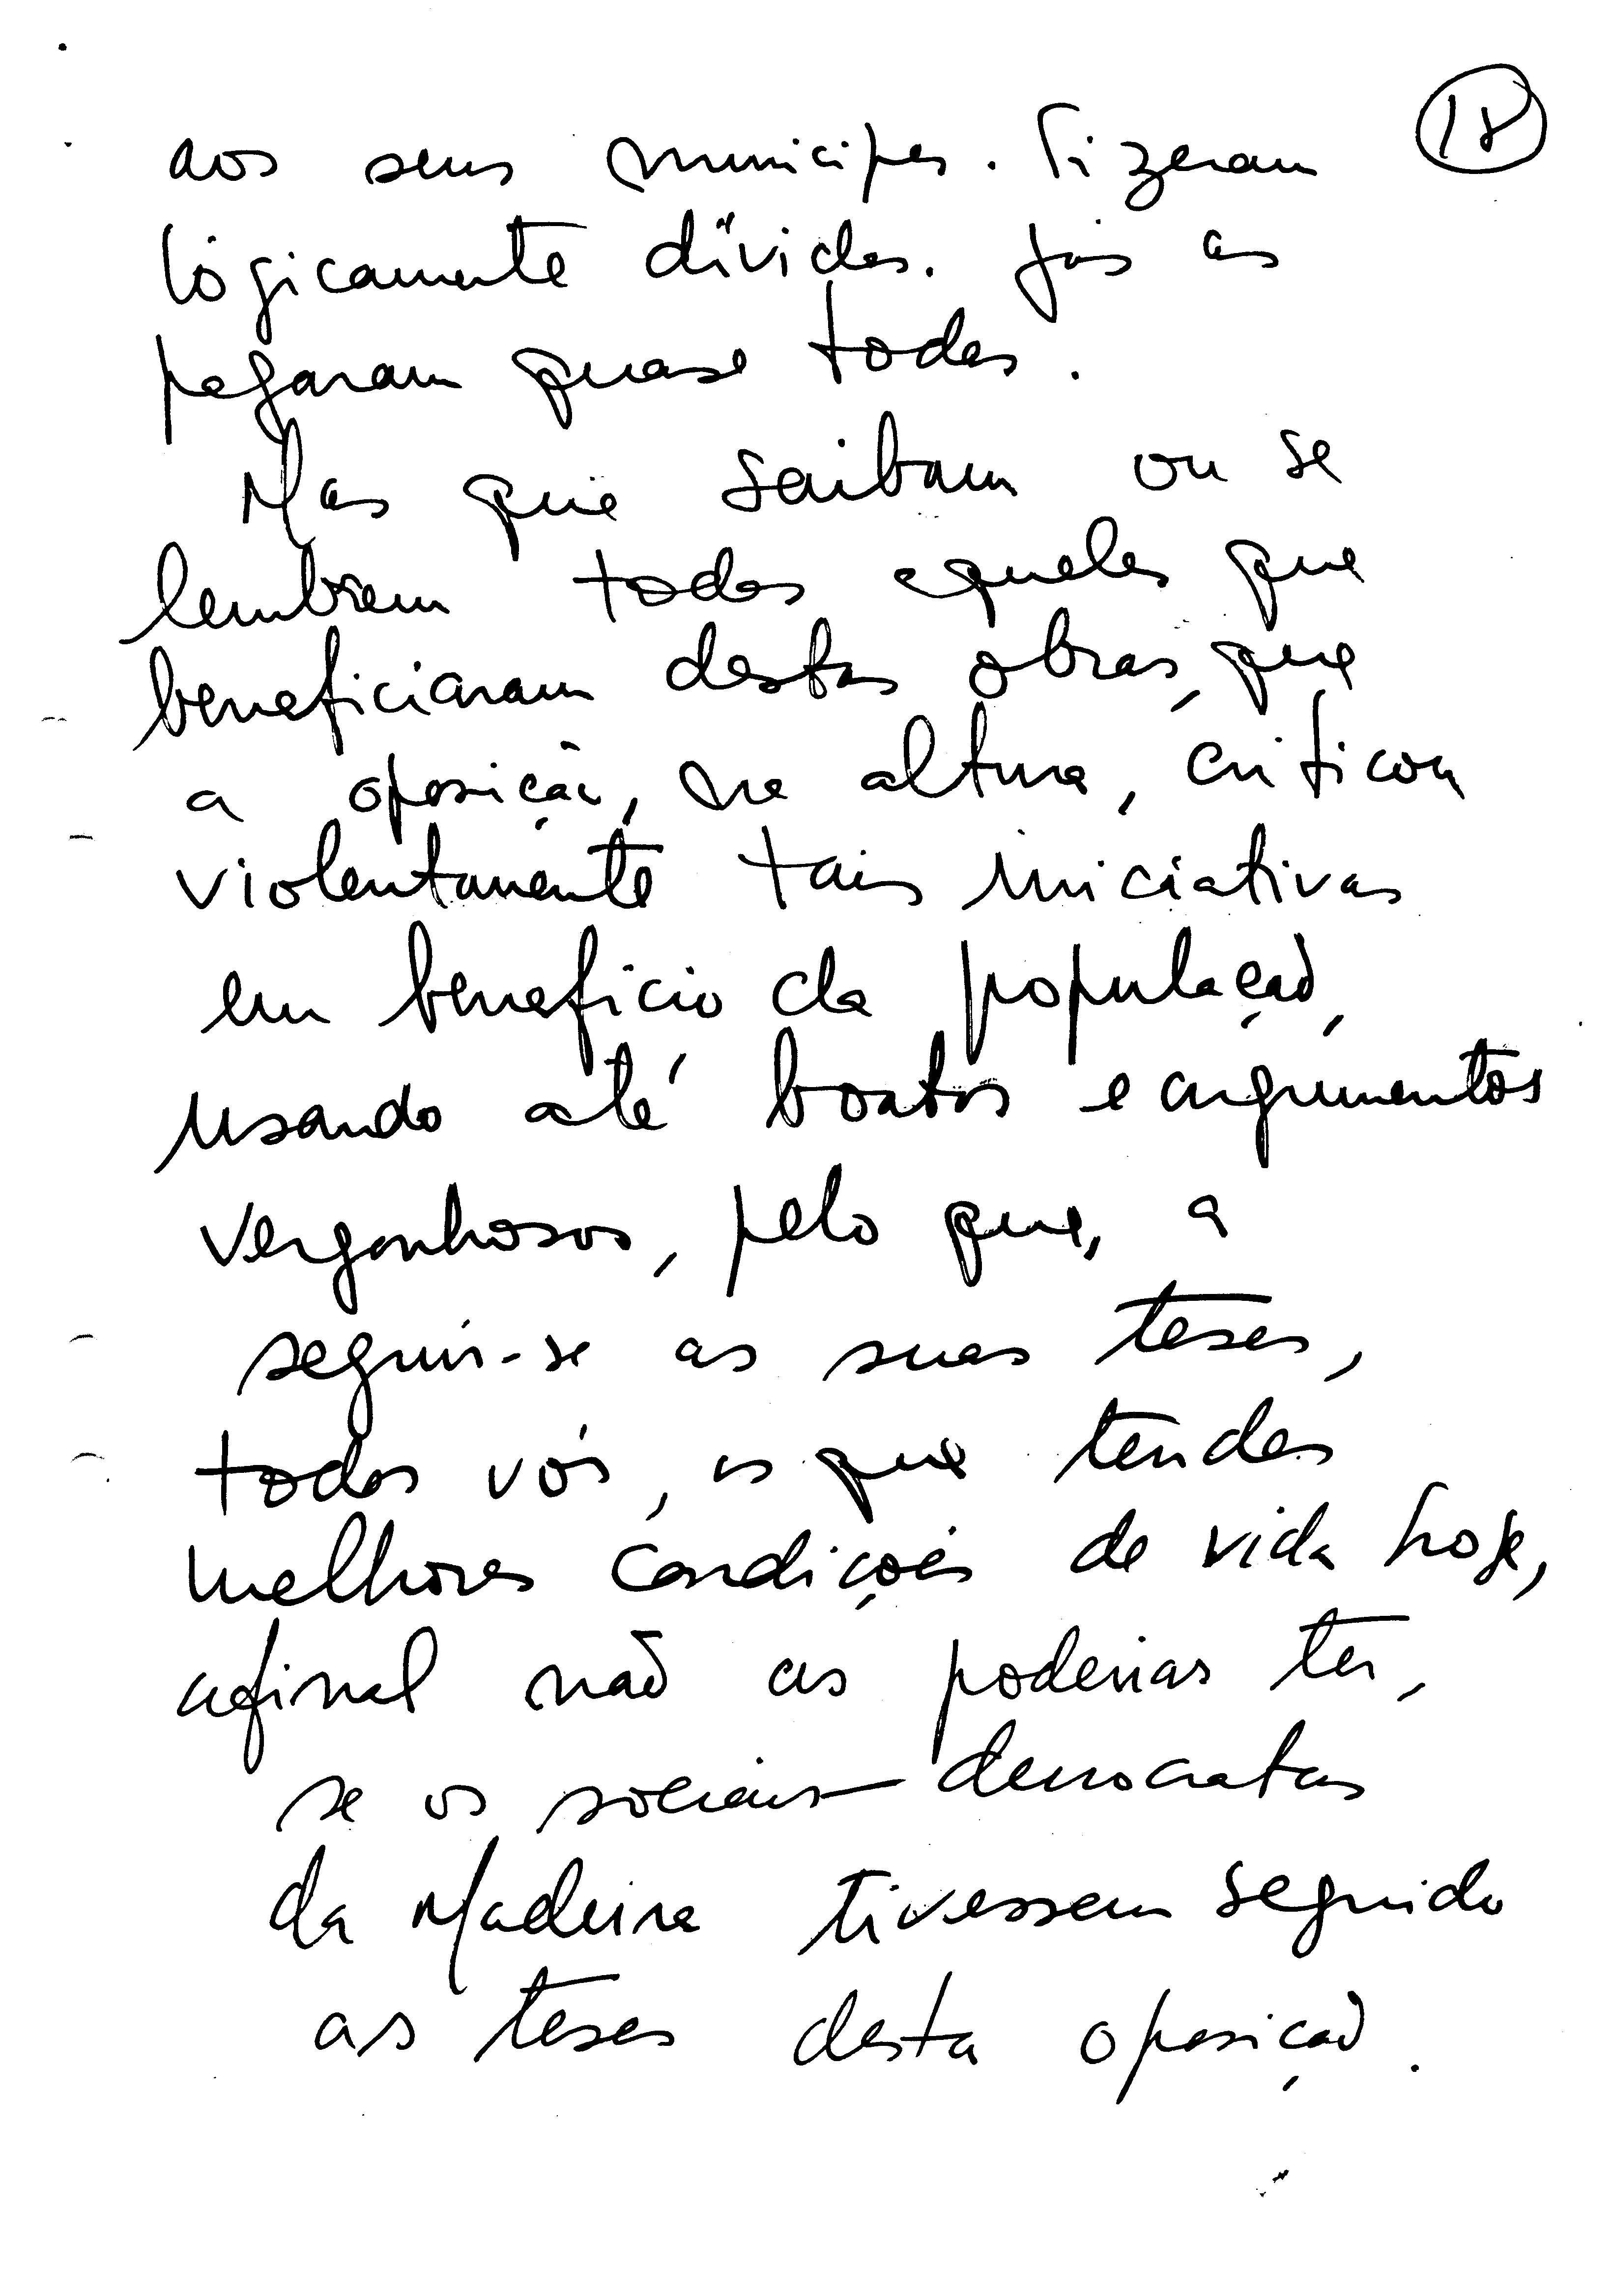 18
aos seus munícipes. Fizeram
lògicamente dívidas. Já as
pagaram quase todas.
Mas que saibam ou se
lembrem todos aqueles que
beneficiaram destas obras, que
a oposição, na altura, criticou
violentamente tais iniciativas
em benefício da população,
usando até boatos e argumentos
vergonhosos, pelo que, a
seguir-se as suas teses,
todos vós, os que tendes
melhores condições de vida hoje,
afinal não as poderias ter,
se os sociais-democratas
da Madeira tivessem seguido
as teses desta oposição.